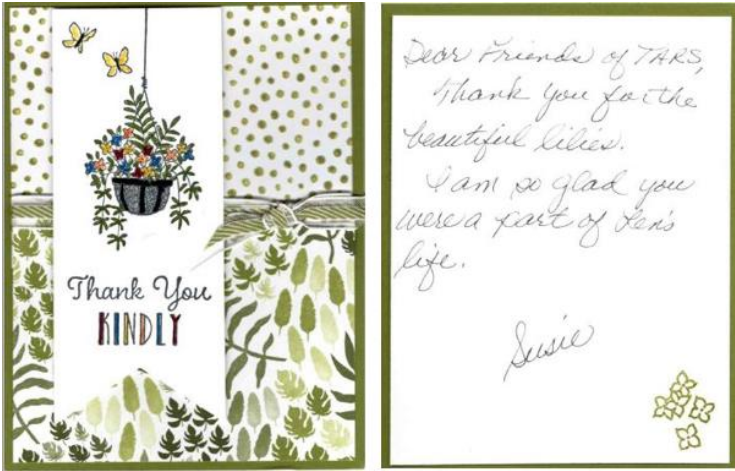 Thank You
KINDLY
Dear Friends of TARS,
Thank you for the
beautiful lilies.
I am so glad you
were a part of Len's
life.
Susie